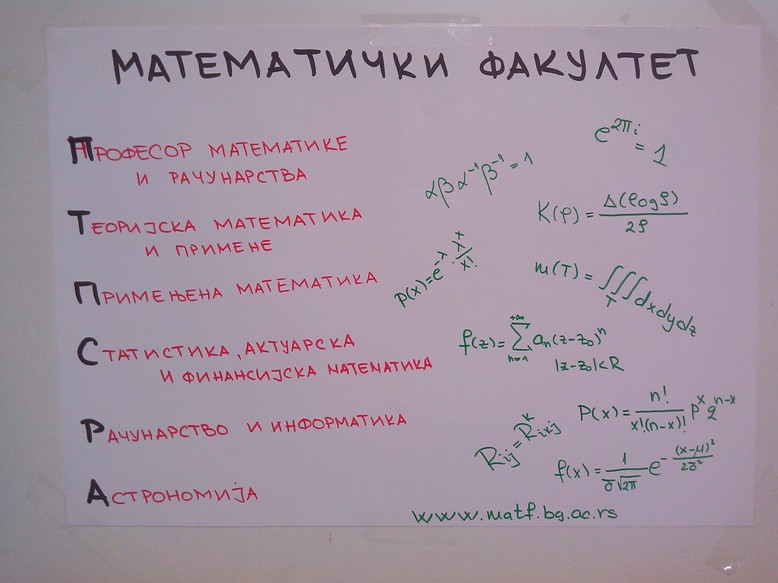 МАТЕМАТИЧКИ ФАКУЛТЕТ
ПРОФЕСОР МАТЕМАТИКЕ
И РАЧУНАРСТВА
ТЕОРИЈСКА МАТЕМАТИКА
И ПРИМЕНЕ
ПРИМЕЊЕНА МАТЕМАТИКА
СТАТИСТИКА, АКТУАРСКА
И ФИНАНСИЈСКА МАТЕМАТИКА
РАЧУНАРСТВО И ИНФОРМАТИКА
АСТРОНОМИЈА
e^{2πi} = 1
αβα⁻¹β⁻¹ = 1
K(ρ) = Δ(log ρ) / 2ρ
p(x) = e^{-λ} · λ^x / x!
m(T) = ∭_T dxdydz
f(z) = ∑_{n=1}^{+∞} aₙ(z-z₀)ⁿ
|z-z₀|<R
P(x) = n! / x!(n-x)! p^x q^{n-x}
R_{ij} = R^k_{ikj}
f(x) = 1 / σ√2π e^{-(x-μ)² / 2σ²}
www.matf.bg.ac.rs